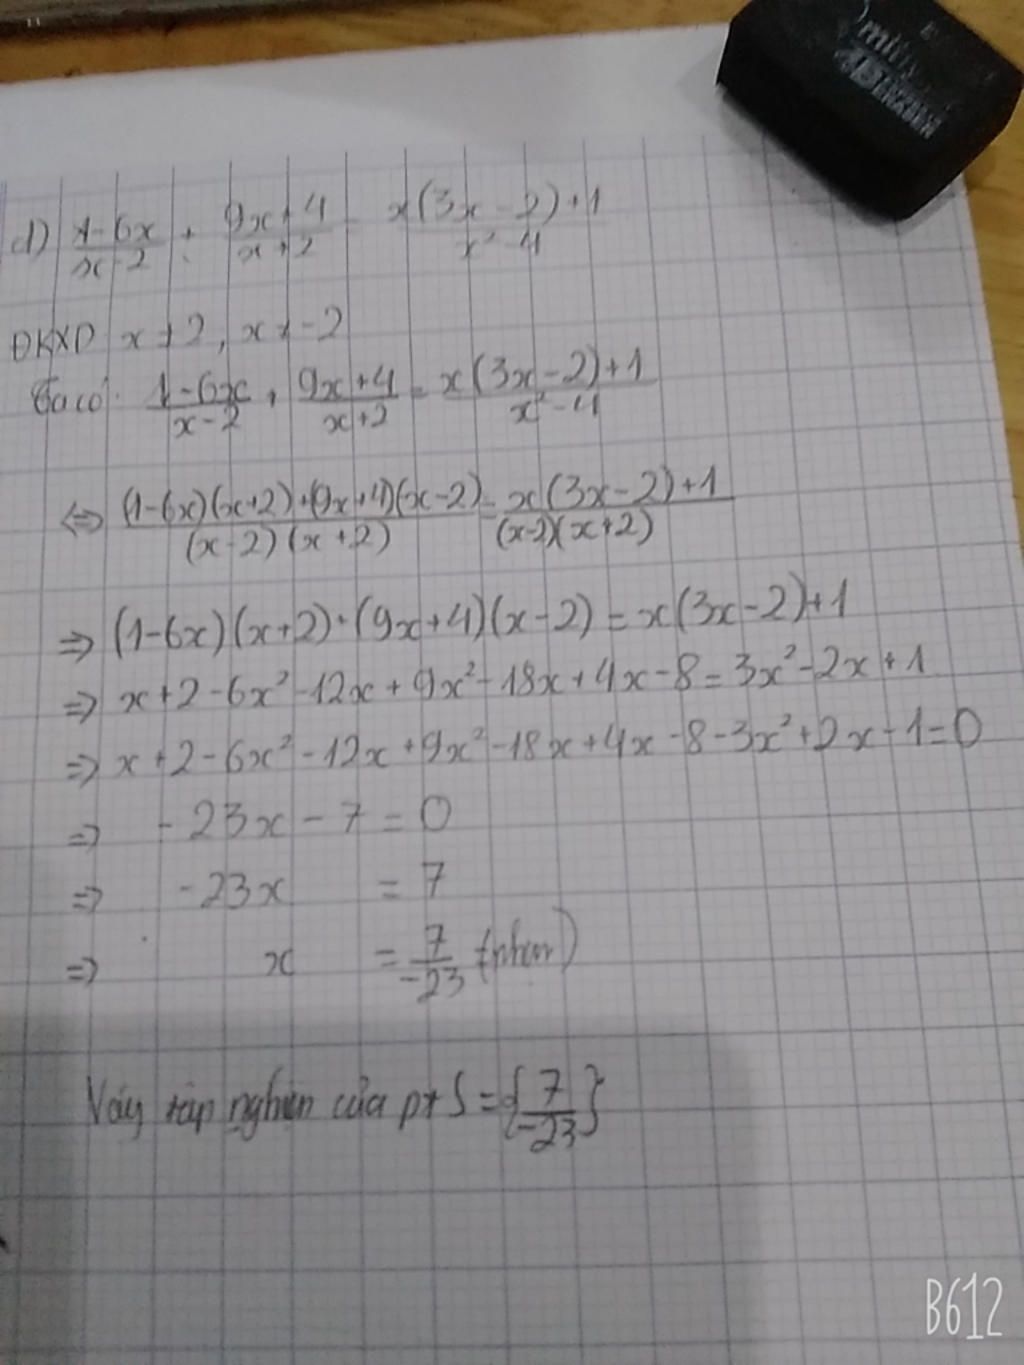 d) (1-6x)/(x-2) + (9x+4)/(x+2) = (x(3x-2)+1)/(x²-4)
ĐKXĐ x≠2, x≠-2
Ta có: (1-6x)/(x-2) + (9x+4)/(x+2) = (x(3x-2)+1)/(x²-4)
⇔ ((1-6x)(x+2)+(9x+4)(x-2))/((x-2)(x+2)) = (x(3x-2)+1)/((x-2)(x+2))
⇒ (1-6x)(x+2)+(9x+4)(x-2)=x(3x-2)+1
⇒ x+2-6x²-12x+9x²-18x+4x-8=3x²-2x+1
⇒ x+2-6x²-12x+9x²-18x+4x-8-3x²+2x-1=0
⇒ -23x-7=0
⇒ -23x = 7
⇒ x = 7/-23 (nhận)
Vậy tập nghiệm của pt S={7/-23}
B612